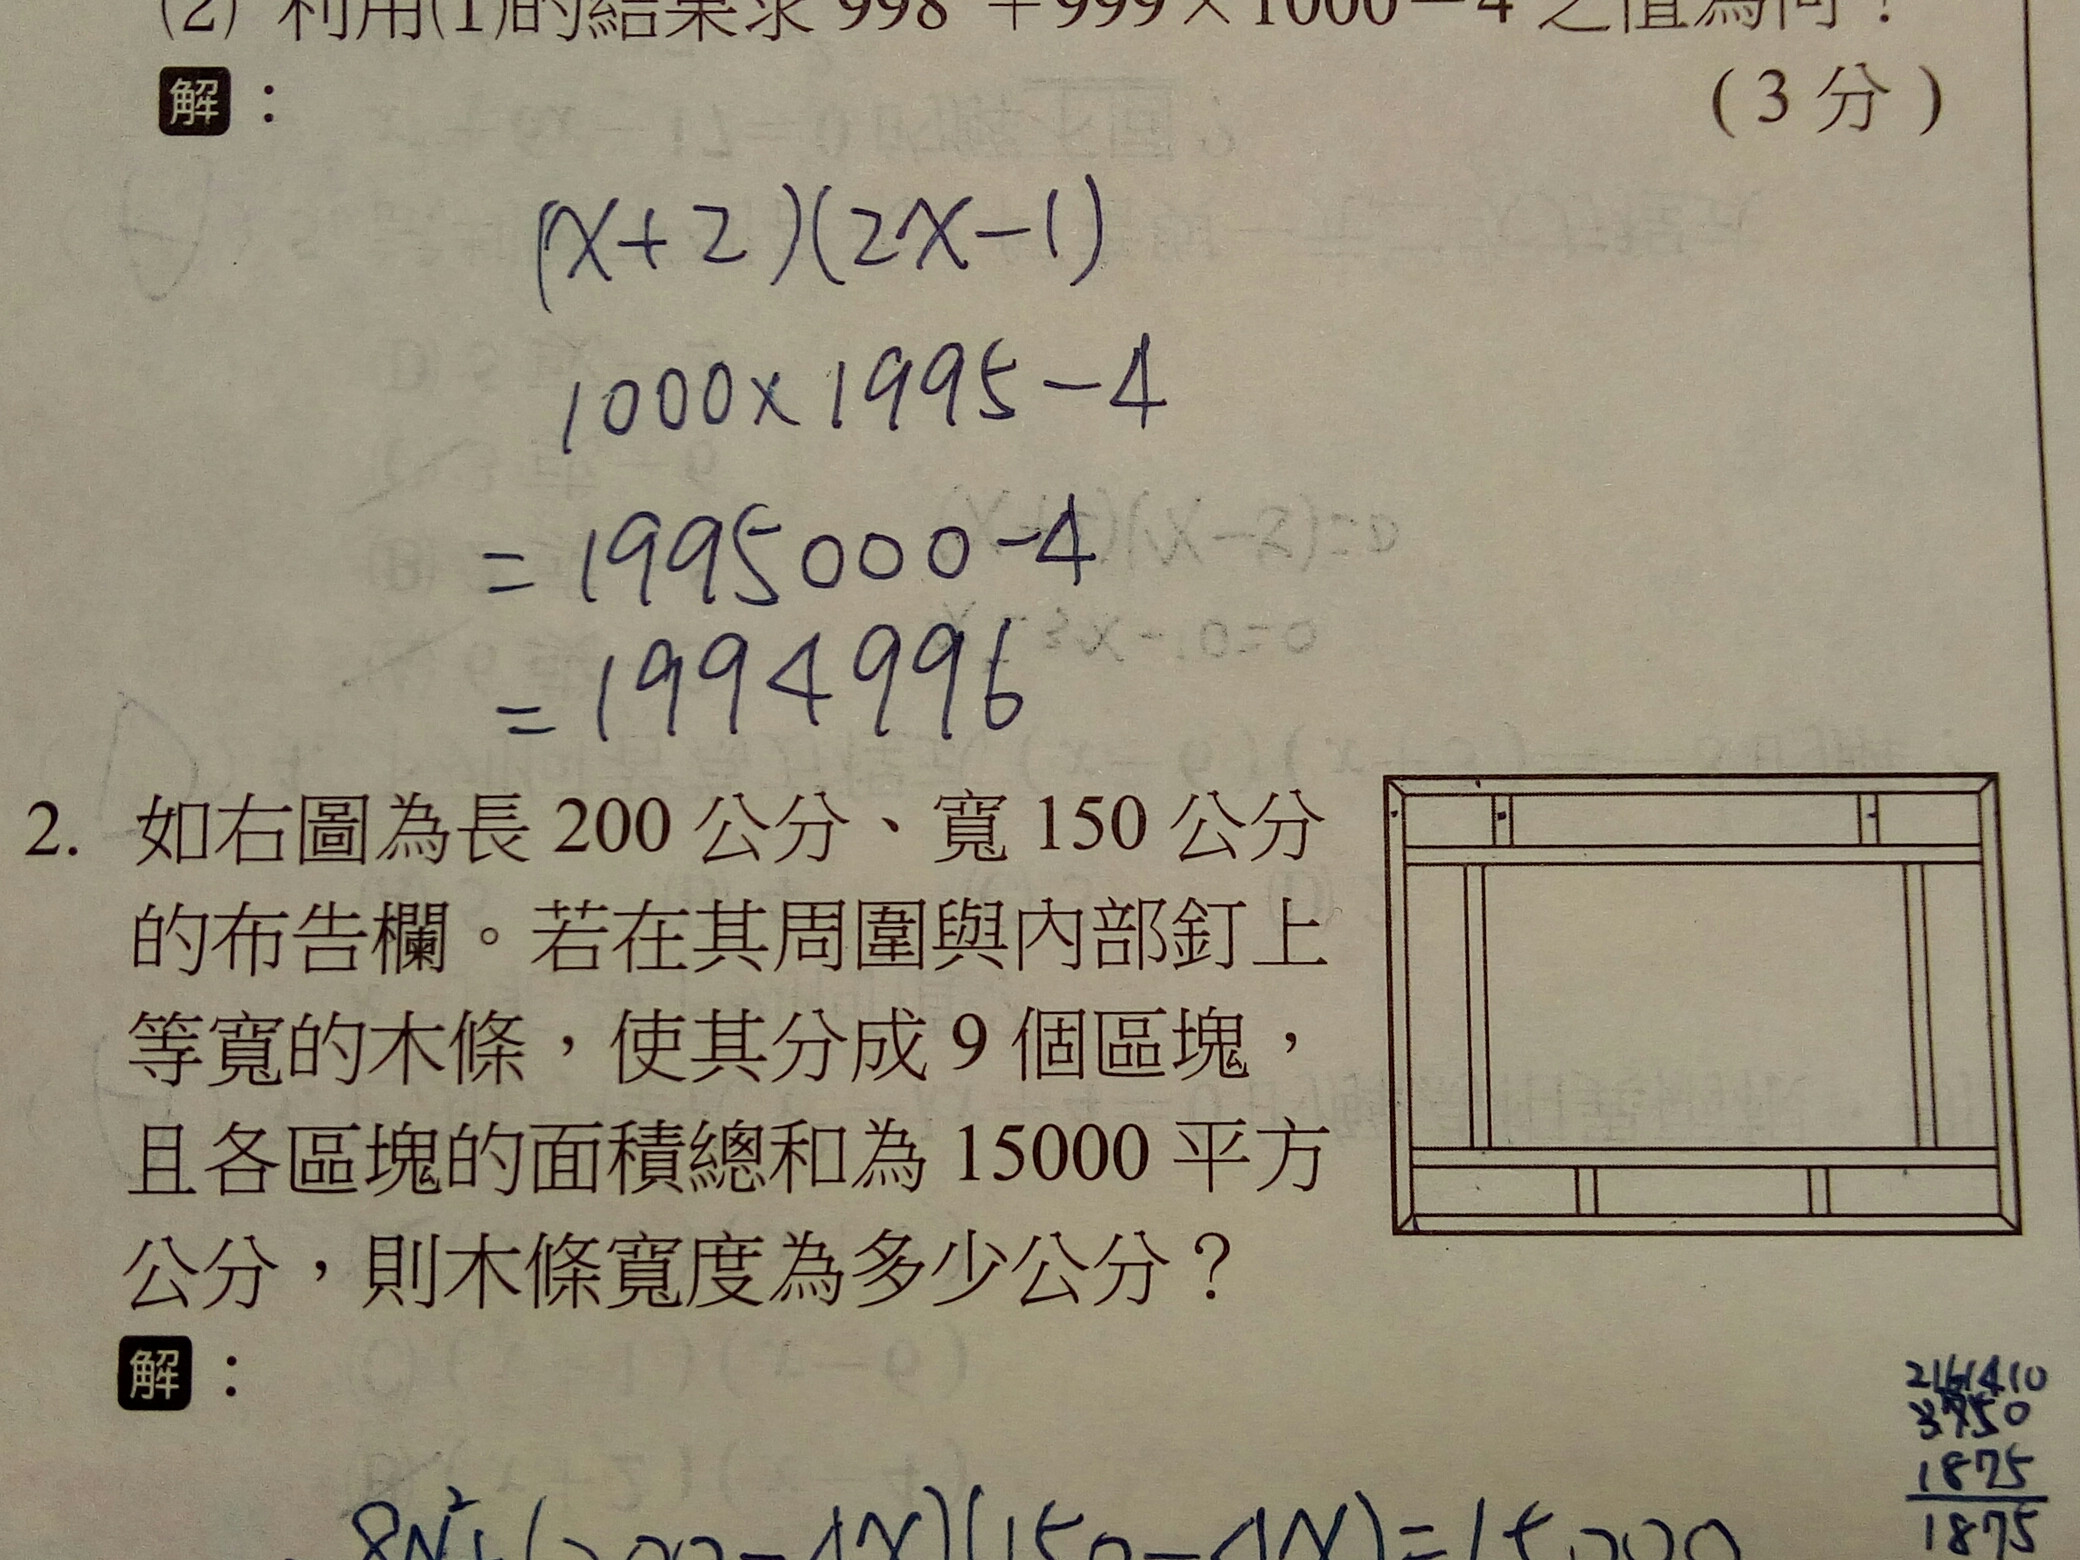 (2) 利用(1)的結果求 998² +999×1000−4 之值為何?
解：
(3分)
(x+2)(2x-1)
1000×1995-4
=1995000-4
=1994996
2. 如右圖為長 200 公分、寬 150 公分
的布告欄。若在其周圍與內部釘上
等寬的木條，使其分成 9 個區塊，
且各區塊的面積總和為 15000 平方
公分，則木條寬度為多少公分？
解：
3750
1875
1875
8x²+(200-4x)(150-4x)=15000